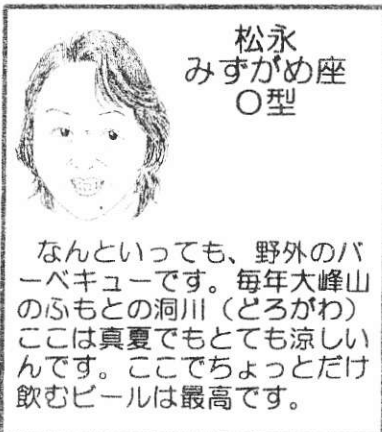 松永
みずがめ座
O型
なんといっても、野外のバ
ーベキューです。毎年大峰山
のふもとの洞川（どろがわ）
ここは真夏でもとても涼しい
んです。ここでちょっとだけ
飲むビールは最高です。